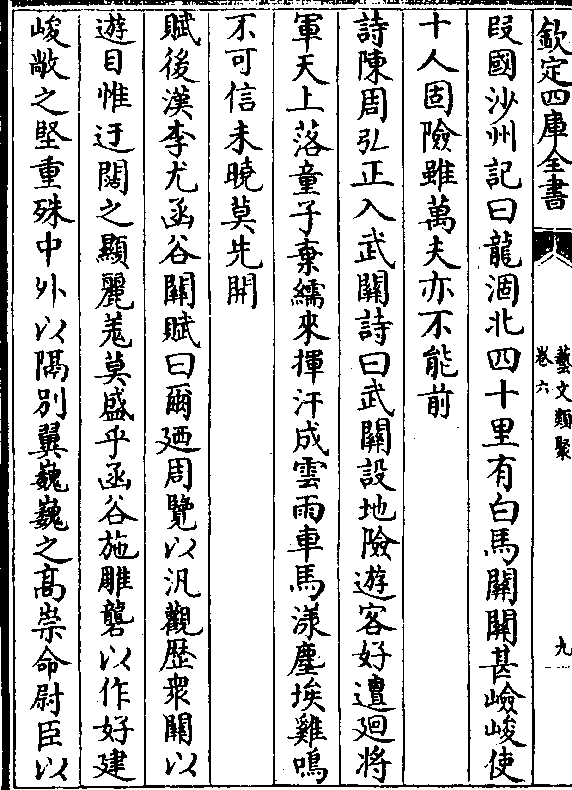 欽定四庫全書
藝文類聚
卷六
九
段國沙州記曰龍涸北四十里有白馬關關甚嶮峻使
十人固險雖萬夫亦不能前
詩陳周弘正入武關詩曰武關設地險遊客好邅廻將
軍天上落童子棄繻來揮汗成雲雨車馬漾塵埃雞鳴
不可信未曉莫先開
賦後漢李尤函谷關賦曰爾廼周覽以汎觀歴衆關以
遊目惟迂闊之顯麗羗莫盛乎函谷施雕礱以作好建
峻敞之堅重殊中外以隔別翼巍巍之髙崇命尉臣以